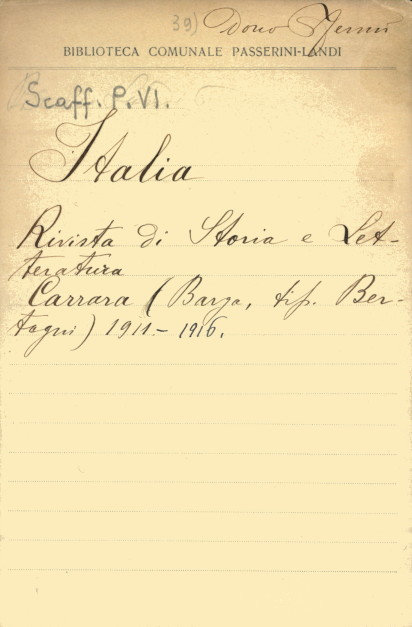 39) Dono
BIBLIOTECA COMUNALE PASSERINI-LANDI
Scaff. P. VI.
Italia
Rivista di Storia e Let-
teratura
Carrara (Barga, tip. Ber-
tagni) 1911 - 1916.